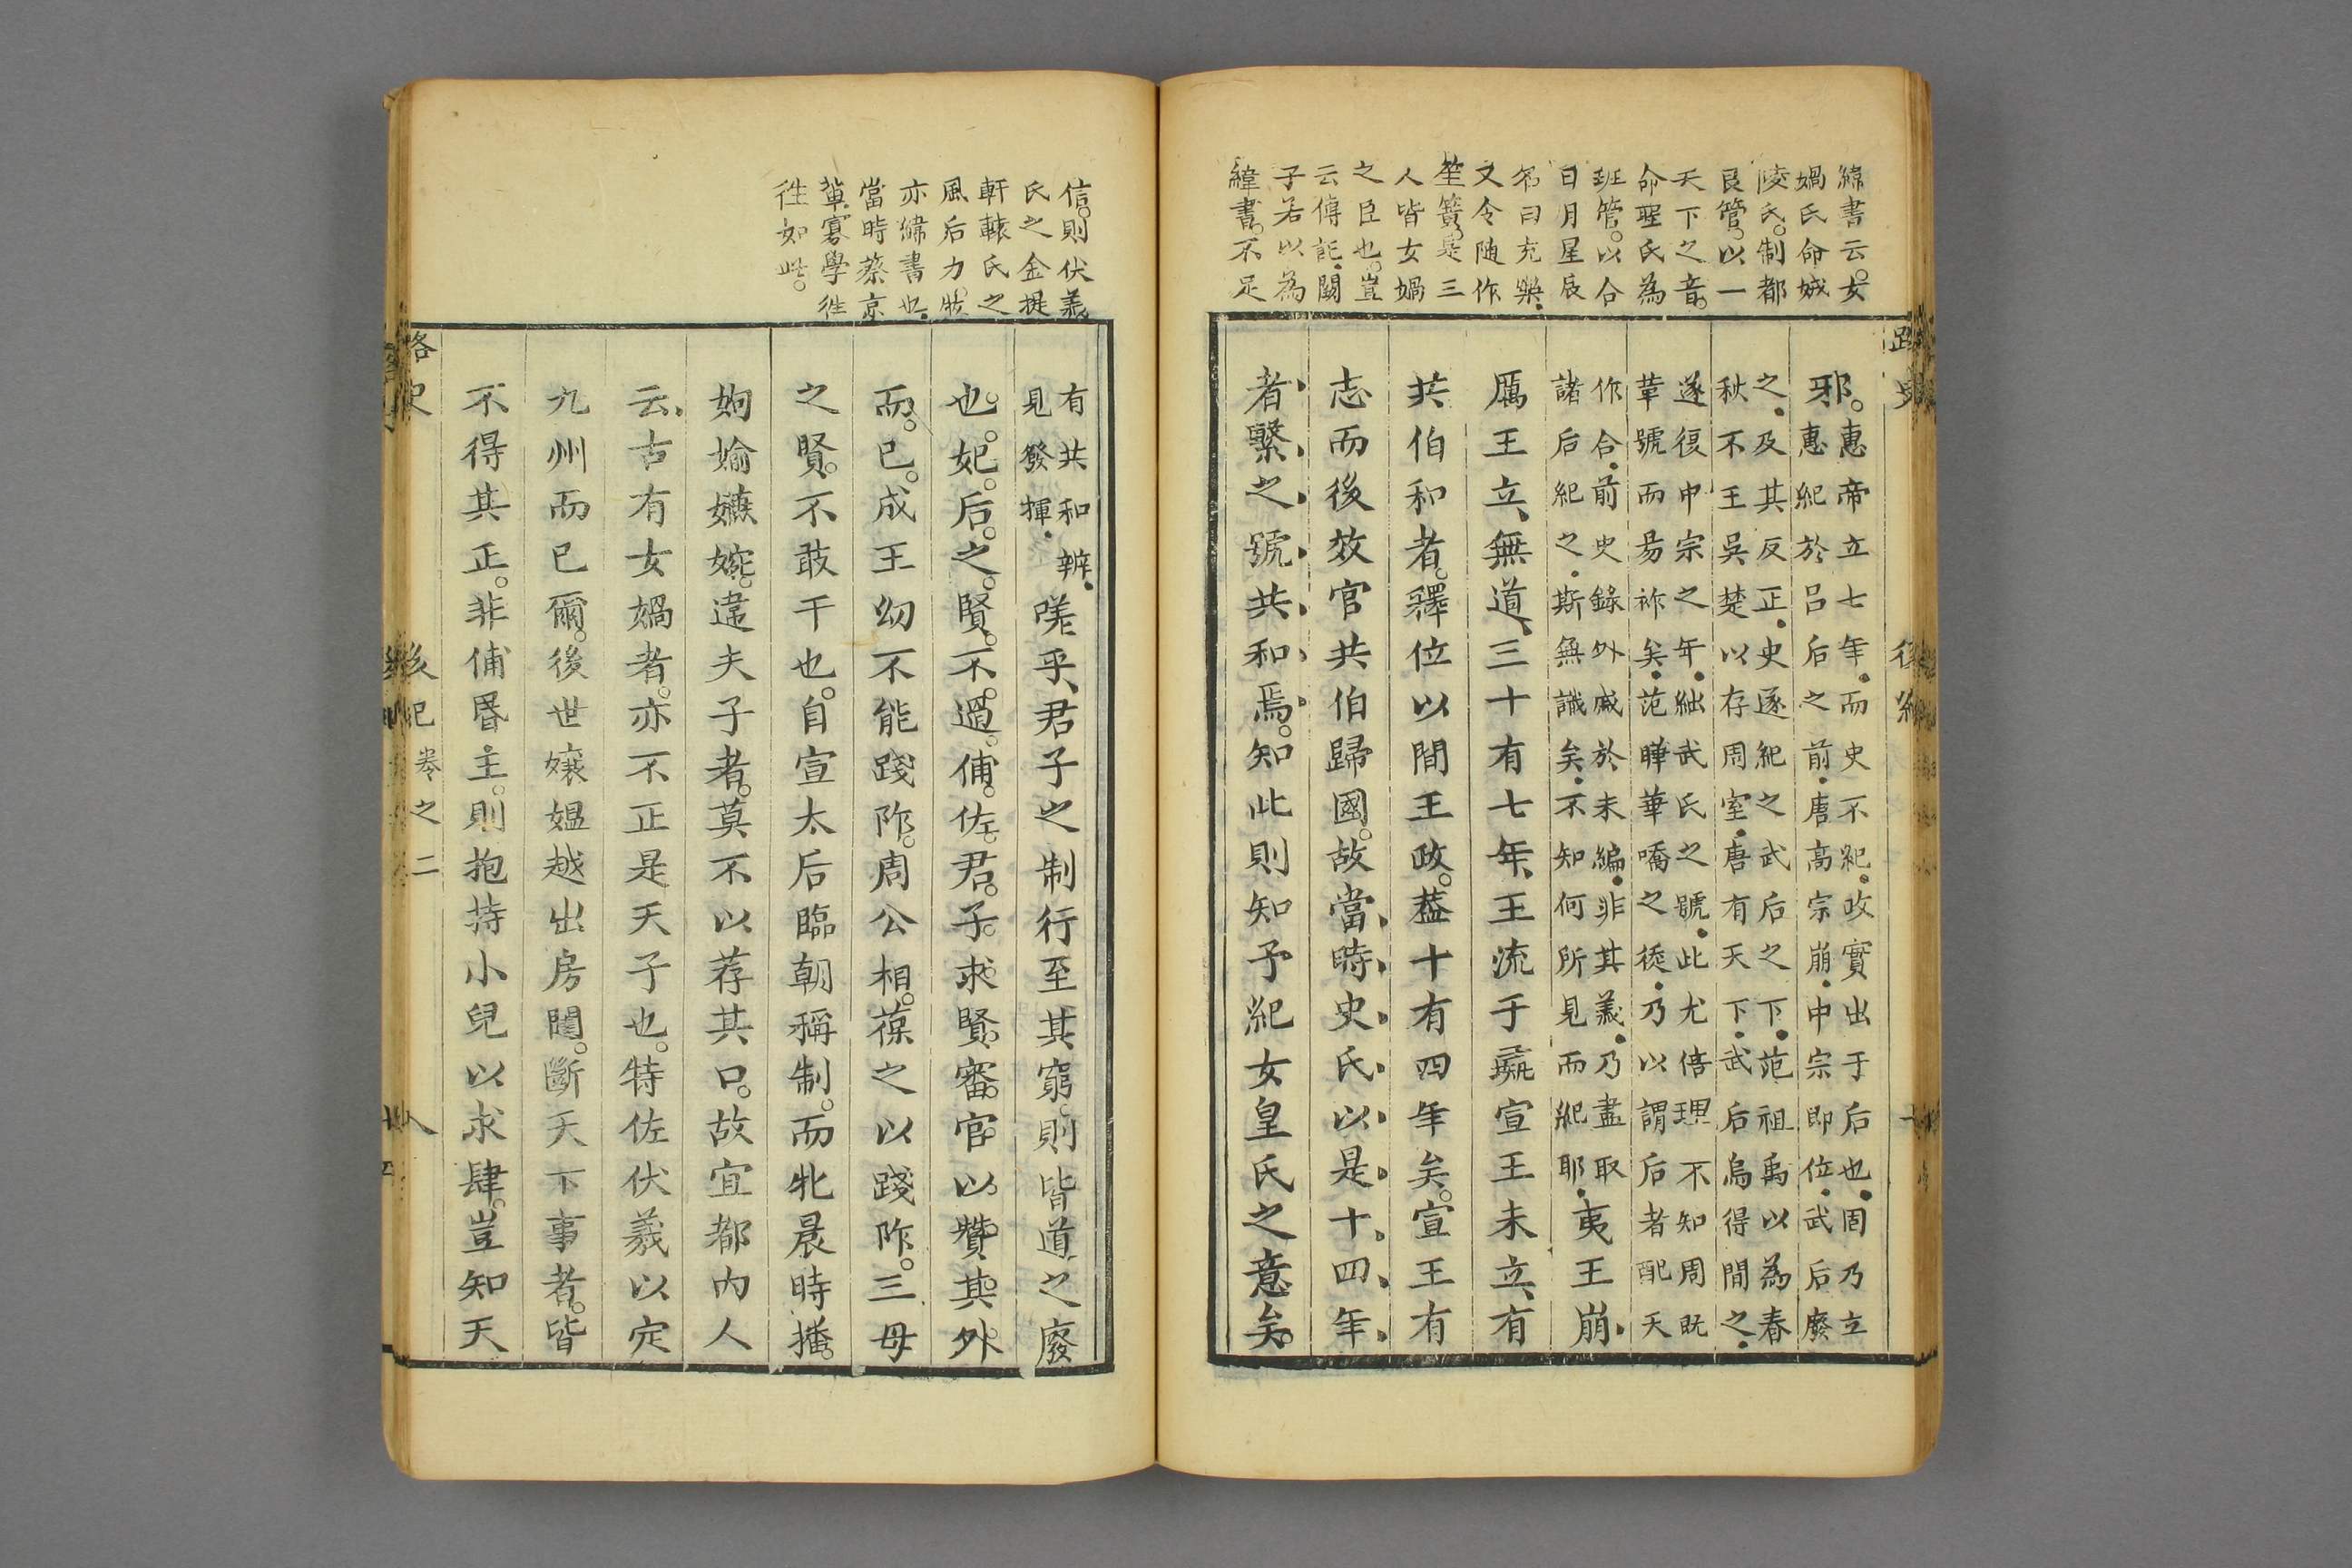 緯書云女
媧氏命娀
陵氏制都
良管以一
天下之音
命聖氏為
班管以合
日月星辰
名曰充樂
又令随作
笙簧是三
人皆女媧
之臣也豈
云傳記闕
子若以為
緯書不足
邪惠帝立七年而史不紀政實出于后也固乃立
惠紀於呂后之前唐高宗崩中宗即位武后廢
之及其反正史遂紀之武后之下范祖禹以為春
秋不王吳楚以存周室唐有天下武后烏得間之
遂復中宗之年絀武氏之號此尤倍理不知周既
革號而易祚矣范曄華嶠之徒乃以謂后者配天
作合前史錄外戚於末編非其義乃盡取
諸后紀之斯無識矣不知何所見而紀耶夷王崩
厲王立無道三十有七年王流于彘宣王未立有
共伯和者釋位以間王政蓋十有四年矣宣王有
志而後效官共伯歸國故當時史氏以是十四年
者繫之號共和焉知此則知予紀女皇氏之意矣
信則伏羲
氏之金提
軒轅氏之
風后力牧
亦緯書也
當時蔡京
輩寡學徃
徃如此
有共和辨
見發揮
嗟乎君子之制行至其窮則皆道之廢
也妃后之賢不過俌佐君子求賢審官以贊其外
而已成王幼不能踐阼周公相葆之以踐阼三母
之賢不敢干也自宣太后臨朝稱制而牝晨時播
姁媮嫵婉違夫子者莫不以荐其口故宜都內人
云古有女媧者亦不正是天子也特佐伏羲以定
九州而已爾後世孃媼越出房閤斷天下事者皆
不得其正非俌昬主則抱持小兒以求肆豈知天
路史
後紀 卷之二